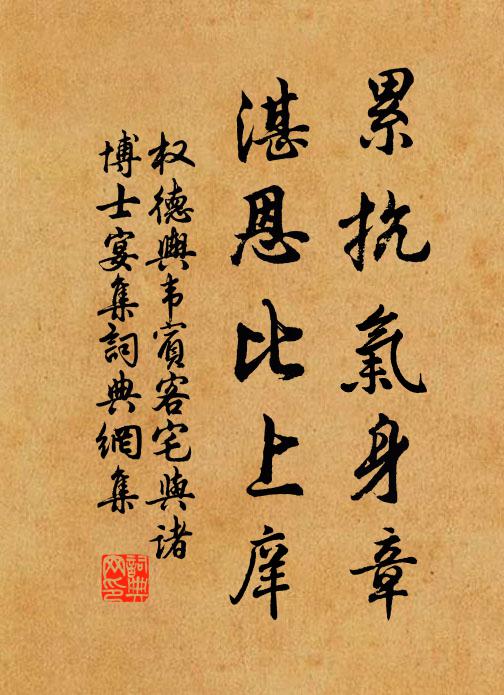 累抗氣身章
湛恩比上庠
权德輿韦賓客宅與諸
博士宴集詞典網集
詞典
网印